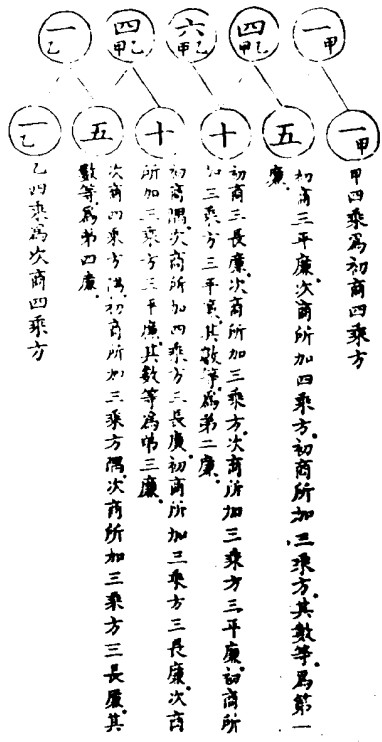 一甲
四甲乙
六甲乙
四甲乙
一乙
一甲
五
十
十
五
一乙
甲四乘爲初商四乘方
初商三平廉次商所加四乘方初商所加三乘方其數等爲第一
廉
初商三長廉次商所加三乘方次商所加三乘方三平廉初商所
加三乘方三平廉其數等爲第二廉
初商隅次商所加四乘方三長廉初商所加三乘方三長廉次商
所加三乘方三平廉其數等爲第三廉
次商四乘方隅初商所加三乘方隅次商所加三乘方三長廉其
數等爲第四廉
乙四乘爲次商四乘方